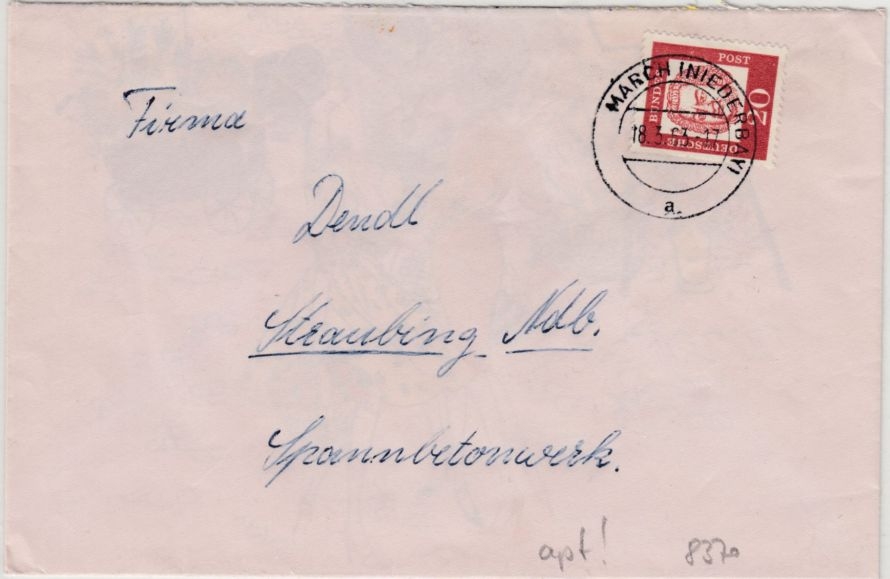 Firma
Dendl
Straubing Ndb.
Spannbetonwerk.
DEUTSCHE BUNDES POST
20
MARCH (NIEDERBAY)
18.3.
a
apt!
8370